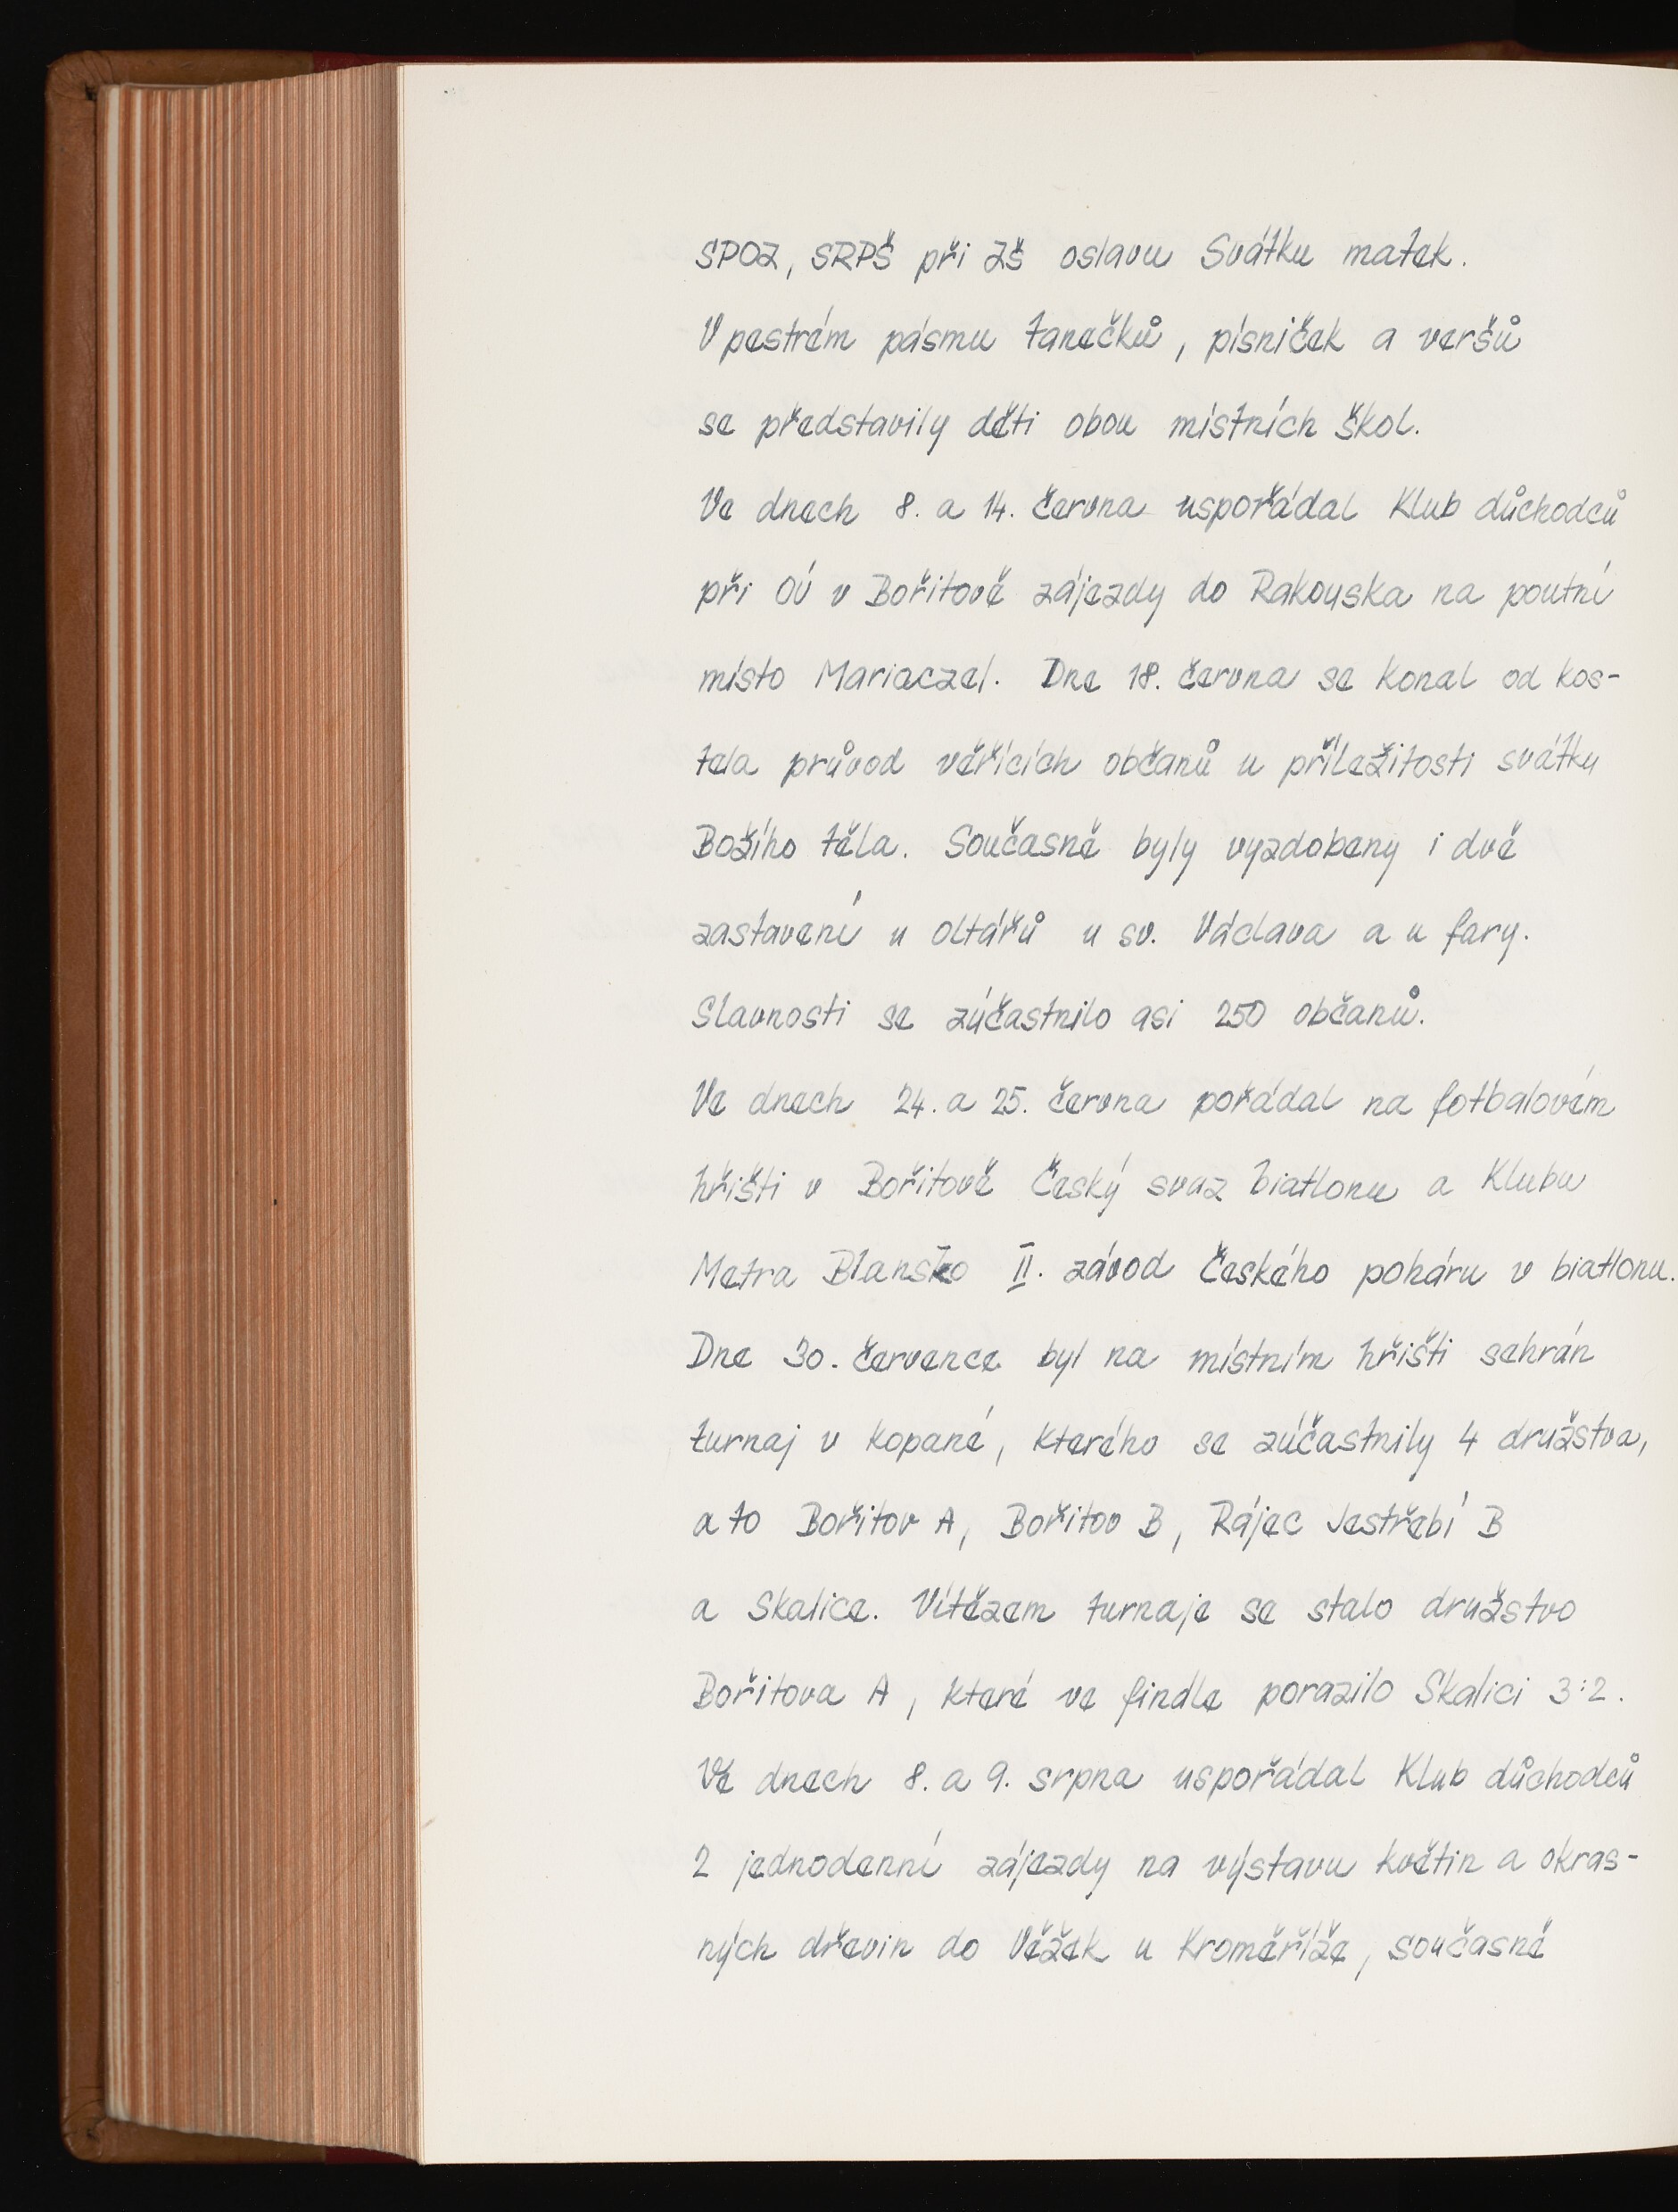 SPOZ, SRPŠ při ZŠ oslavu Svátku matek.
V pestrém pásmu tanečků, písniček a veršů
se představily děti obou místních škol.
Ve dnech 8. a 14. června uspořádal Klub důchodců
při OÚ v Bořitově zájezdy do Rakouska na poutní
místo Mariaczel. Dne 18. června se konal od kos-
tela průvod věřících občanů u příležitosti svátku
Božího těla. Současně byly vyzdobeny i dvě
zastavení u oltářů u sv. Václava a u fary.
Slavnosti se zúčastnilo asi 250 občanů.
Ve dnech 24. a 25. června pořádal na fotbalovém
hřišti v Bořitově Český svaz biatlonu a Klubu
Metra Blansko II. závod Českého poháru v biatlonu.
Dne 30. července byl na místním hřišti sehrán
turnaj v kopané, kterého se zúčastnily 4 družstva,
a to Bořitov A, Bořitov B, Rájec Jestřebí B
a Skalice. Vítězem turnaje se stalo družstvo
Bořitova A, které ve findle porazilo Skalici 3:2.
Ve dnech 8. a 9. srpna uspořádal Klub důchodců
2 jednodenní zájezdy na výstavu květin a okras-
ných dřevin do Věžek u Kroměříže, současně